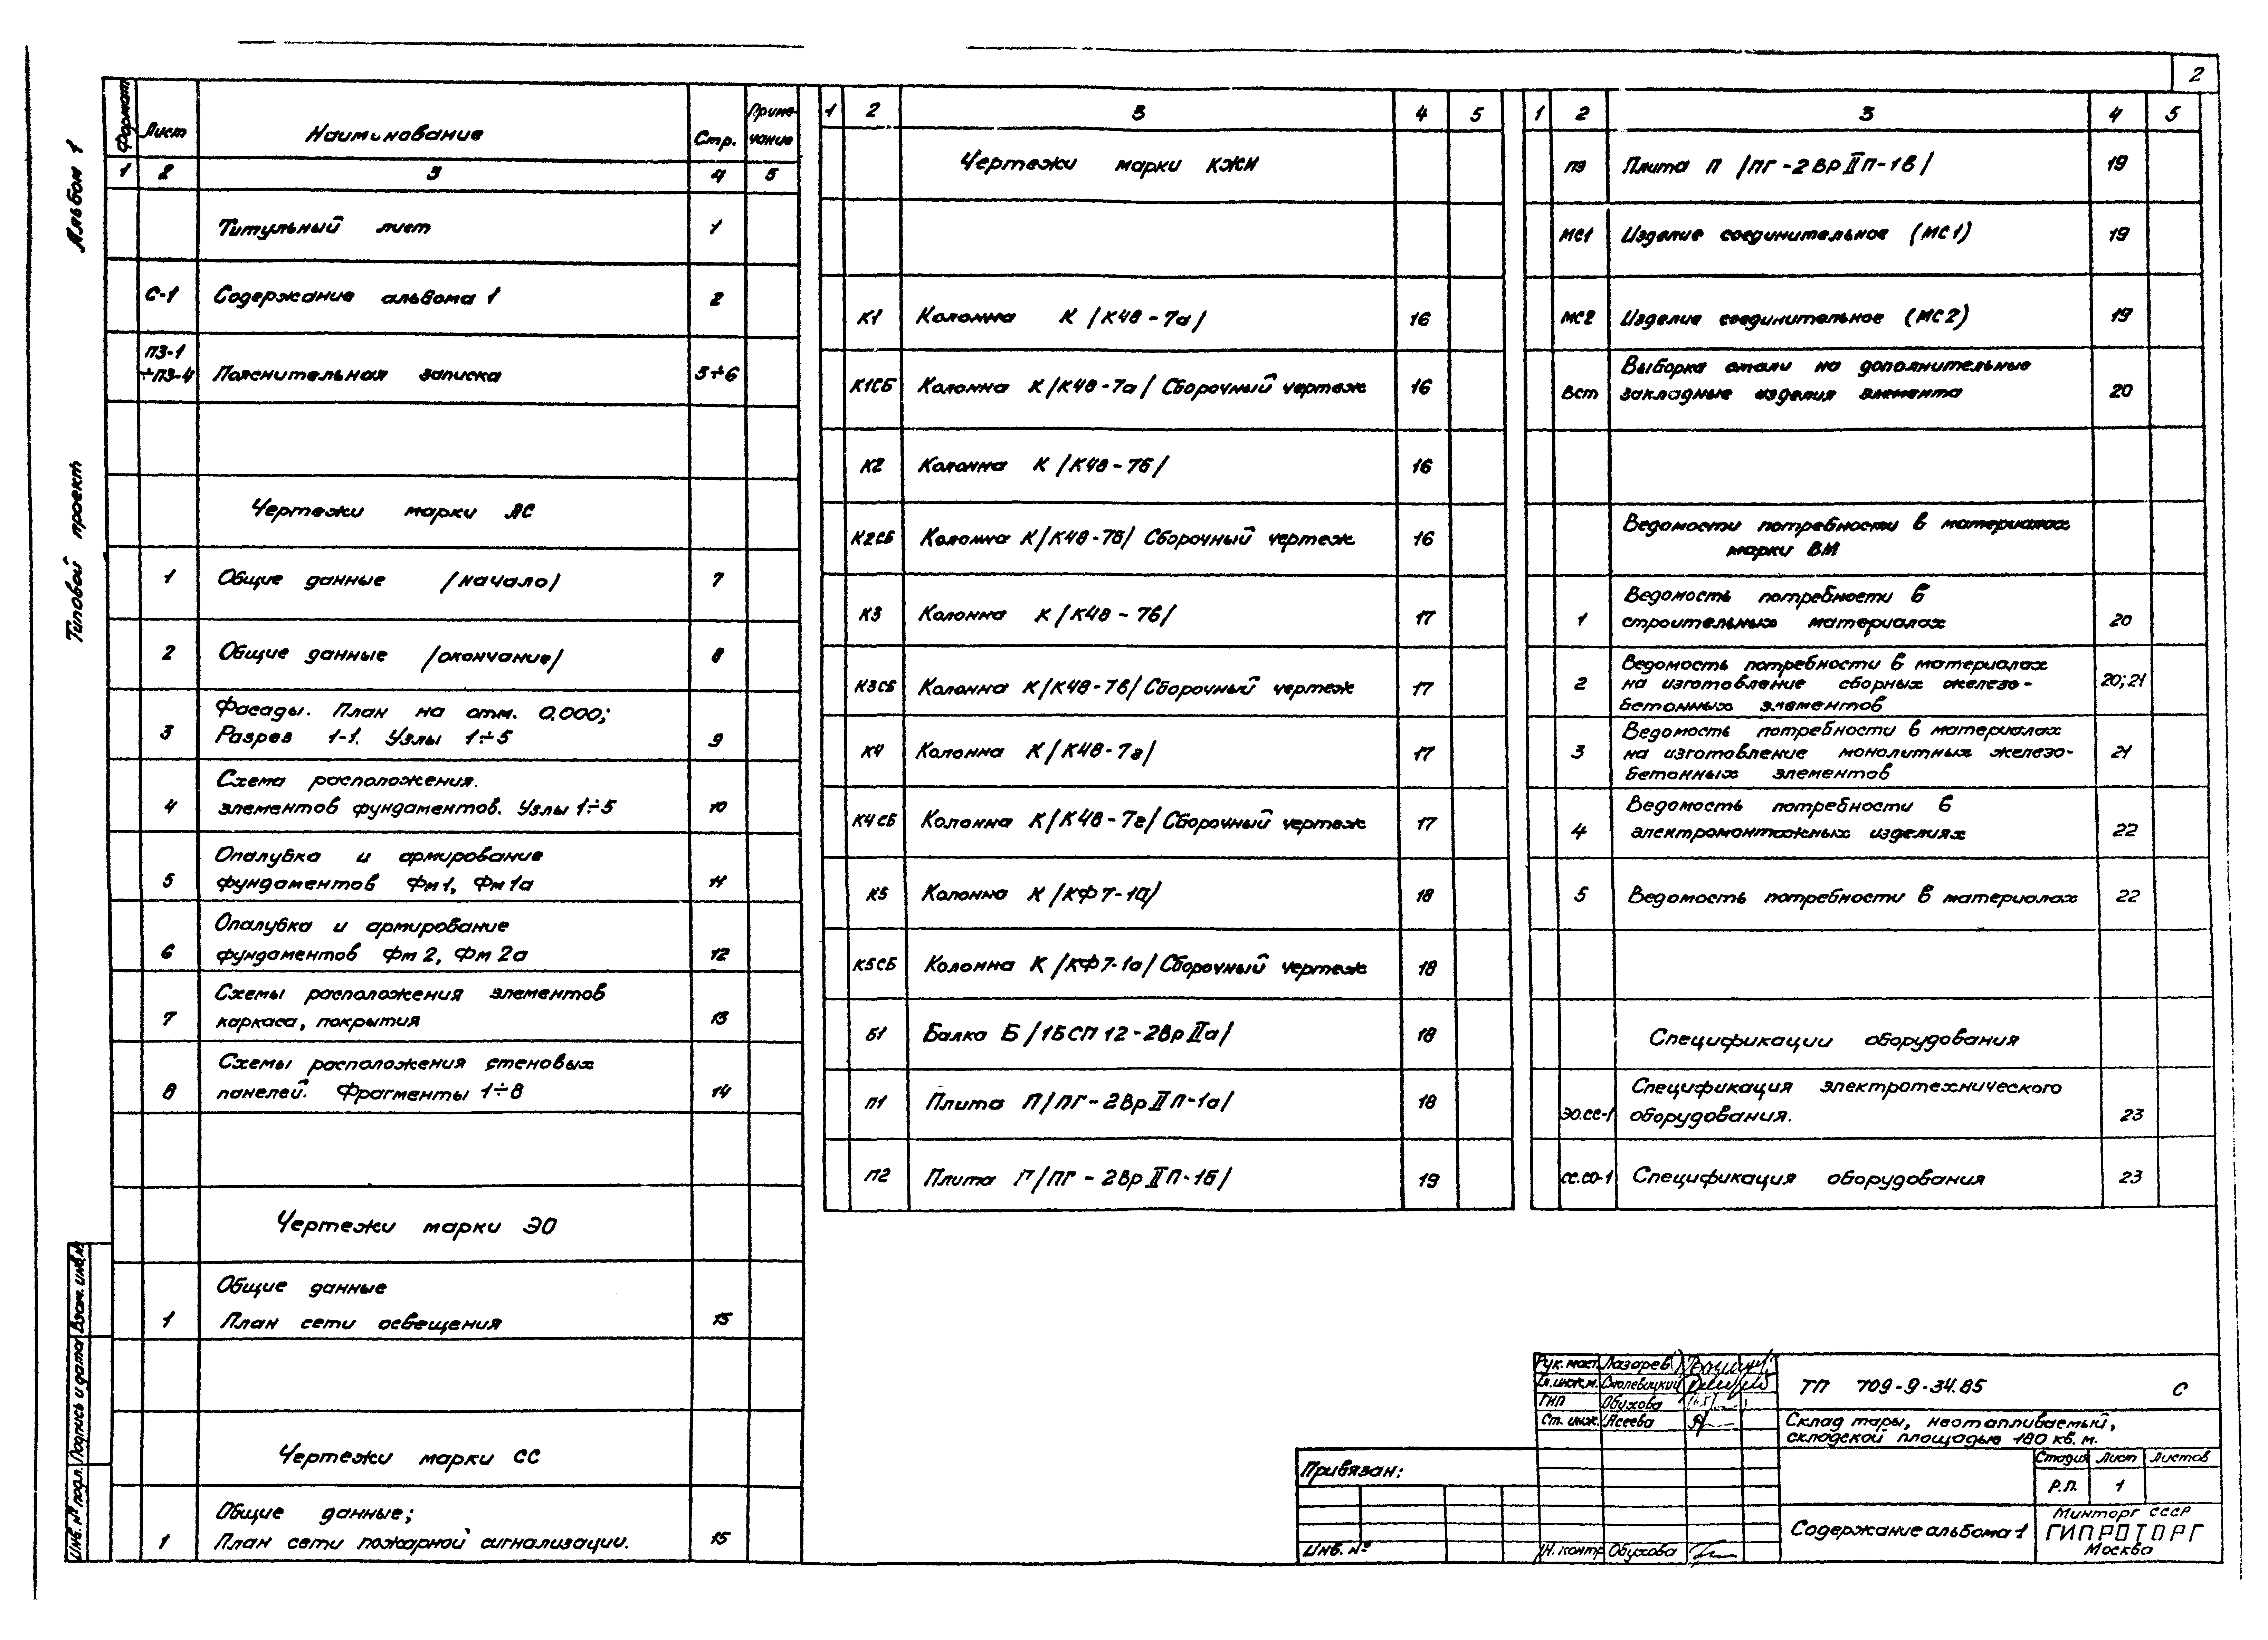 2
Альбом 1
Типовой проект
Формат Лист Наименование Стр. Приме-
чание
1 2 3 4 5
Титульный лист 1
С-1 Содержание альбома 1 2
ПЗ-1
÷ПЗ-4 Пояснительная записка 3÷6
Чертежи марки АС
1 Общие данные /начало/ 7
2 Общие данные /окончание/ 8
Фасады. План на отм. 0.000;
3 Разрез 1-1. Узлы 1÷5 9
Схема расположения
4 элементов фундаментов. Узлы 1÷5 10
Опалубка и армирование
5 фундаментов Фм1, Фм1а 11
Опалубка и армирование
6 фундаментов Фм2, Фм2а 12
Схемы расположения элементов
7 каркаса, покрытия 13
Схемы расположения стеновых
8 панелей. Фрагменты 1÷8 14
Чертежи марки ЭО
Общие данные
1 План сети освещения 15
Чертежи марки СС
Общие данные;
1 План сети пожарной сигнализации. 15
1 2 3 4 5
Чертежи марки КЖИ
К1 Колонна К /К48-7а/ 16
К1СБ Колонна К/К48-7а/ Сборочный чертеж 16
К2 Колонна К /К48-7б/ 16
К2СБ Колонна К/К48-7б/ Сборочный чертеж 16
К3 Колонна К /К48-7в/ 17
К3СБ Колонна К/К48-7в/ Сборочный чертеж 17
К4 Колонна К /К48-7г/ 17
К4СБ Колонна К/К48-7г/ Сборочный чертеж 17
К5 Колонна К /КФ7-1а/ 18
К5СБ Колонна К /КФ7-1а/ Сборочный чертеж 18
Б1 Балка Б /1БСП12-2ВрIIа/ 18
П1 Плита П/ПГ-2ВрIIП-1а/ 18
П2 Плита П/ПГ-2ВрIIП-1б/ 19
1 2 3 4 5
П3 Плита П /ПГ-2ВрIIП-1в/ 19
МС1 Изделие соединительное (МС1) 19
МС2 Изделие соединительное (МС2) 19
Выборка стали на дополнительные
Вст закладные изделия элемента 20
Ведомости потребности в материалах
марки ВМ
Ведомость потребности в
1 строительных материалах 20
Ведомость потребности в материалах
2 на изготовление сборных железо- 20;21
бетонных элементов
Ведомость потребности в материалах
3 на изготовление монолитных железо- 21
бетонных элементов
Ведомость потребности в
4 электромонтажных изделиях 22
5 Ведомость потребности в материалах 22
Спецификации оборудования
Спецификация электротехнического
ЭО.СС-1 оборудования. 23
СС.СО-1 Спецификация оборудования 23
Инв. № подл. Подпись и дата Взам. инв.№
Рук. маст. Лазарев
Гл. инж.м. Смолевицкий
ГИП Обухова
Ст. инж. Асеева
Н. контр Обухова
Привязан:
Инв. №
ТП 709-9-34.85 С
Склад тары, неотапливаемый,
складской площадью 180 кв. м.
Стадия Лист Листов
Р.П. 1
Содержание альбома 1
Минторг СССР
ГИПРОТОРГ
Москва